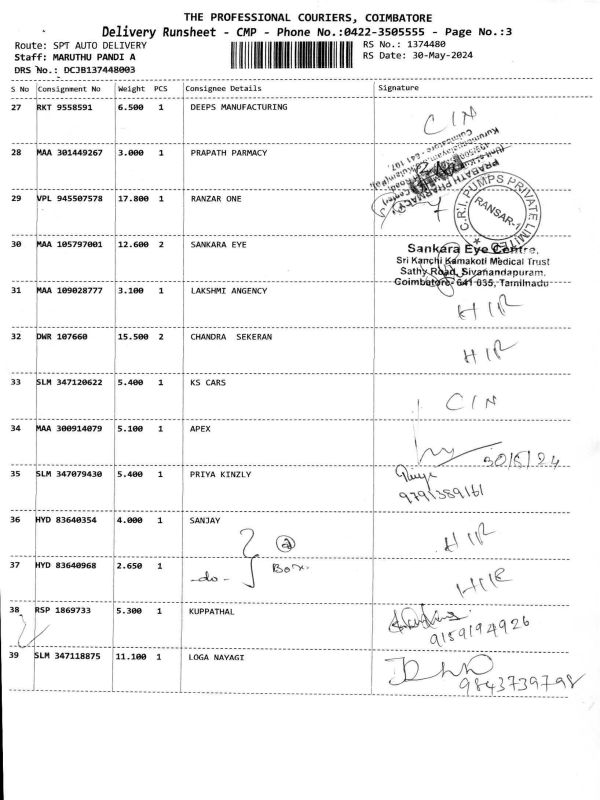 THE PROFESSIONAL COURIERS, COIMBATORE
Delivery Runsheet - CMP - Phone No.:0422-3505555 - Page No.:3
Route: SPT AUTO DELIVERY RS No.: 1374480
Staff: MARUTHU PANDI A RS Date: 30-May-2024
DRS No.: DCJB137448003
S No Consignment No Weight PCS Consignee Details Signature
27 RKT 9558591 6.500 1 DEEPS MANUFACTURING CIN
28 MAA 301449267 3.000 1 PRAPATH PARMACY
PRAPATH PHARMACY
29 VPL 945507578 17.800 1 RANZAR ONE
C.R.I. PUMPS PRIVATE LIMITED
RANSAR-1
30 MAA 105797001 12.600 2 SANKARA EYE
Sankara Eye Centre,
Sri Kanchi Kamakoti Medical Trust
Sathy Road, Sivanandapuram,
Coimbatore-641 035, Tamilnadu
31 MAA 109028777 3.100 1 LAKSHMI ANGENCY H/R
32 DWR 107660 15.500 2 CHANDRA SEKERAN H/R
33 SLM 347120622 5.400 1 KS CARS CIN
34 MAA 300914079 5.100 1 APEX 30/5/24
35 SLM 347079430 5.400 1 PRIYA KINZLY
9791389161
36 HYD 83640354 4.000 1 SANJAY H/R
2 Box.
37 HYD 83640968 2.650 1 -do- H/R
38 RSP 1869733 5.300 1 KUPPATHAL
9159194926
39 SLM 347118875 11.100 1 LOGA NAYAGI
9843739798